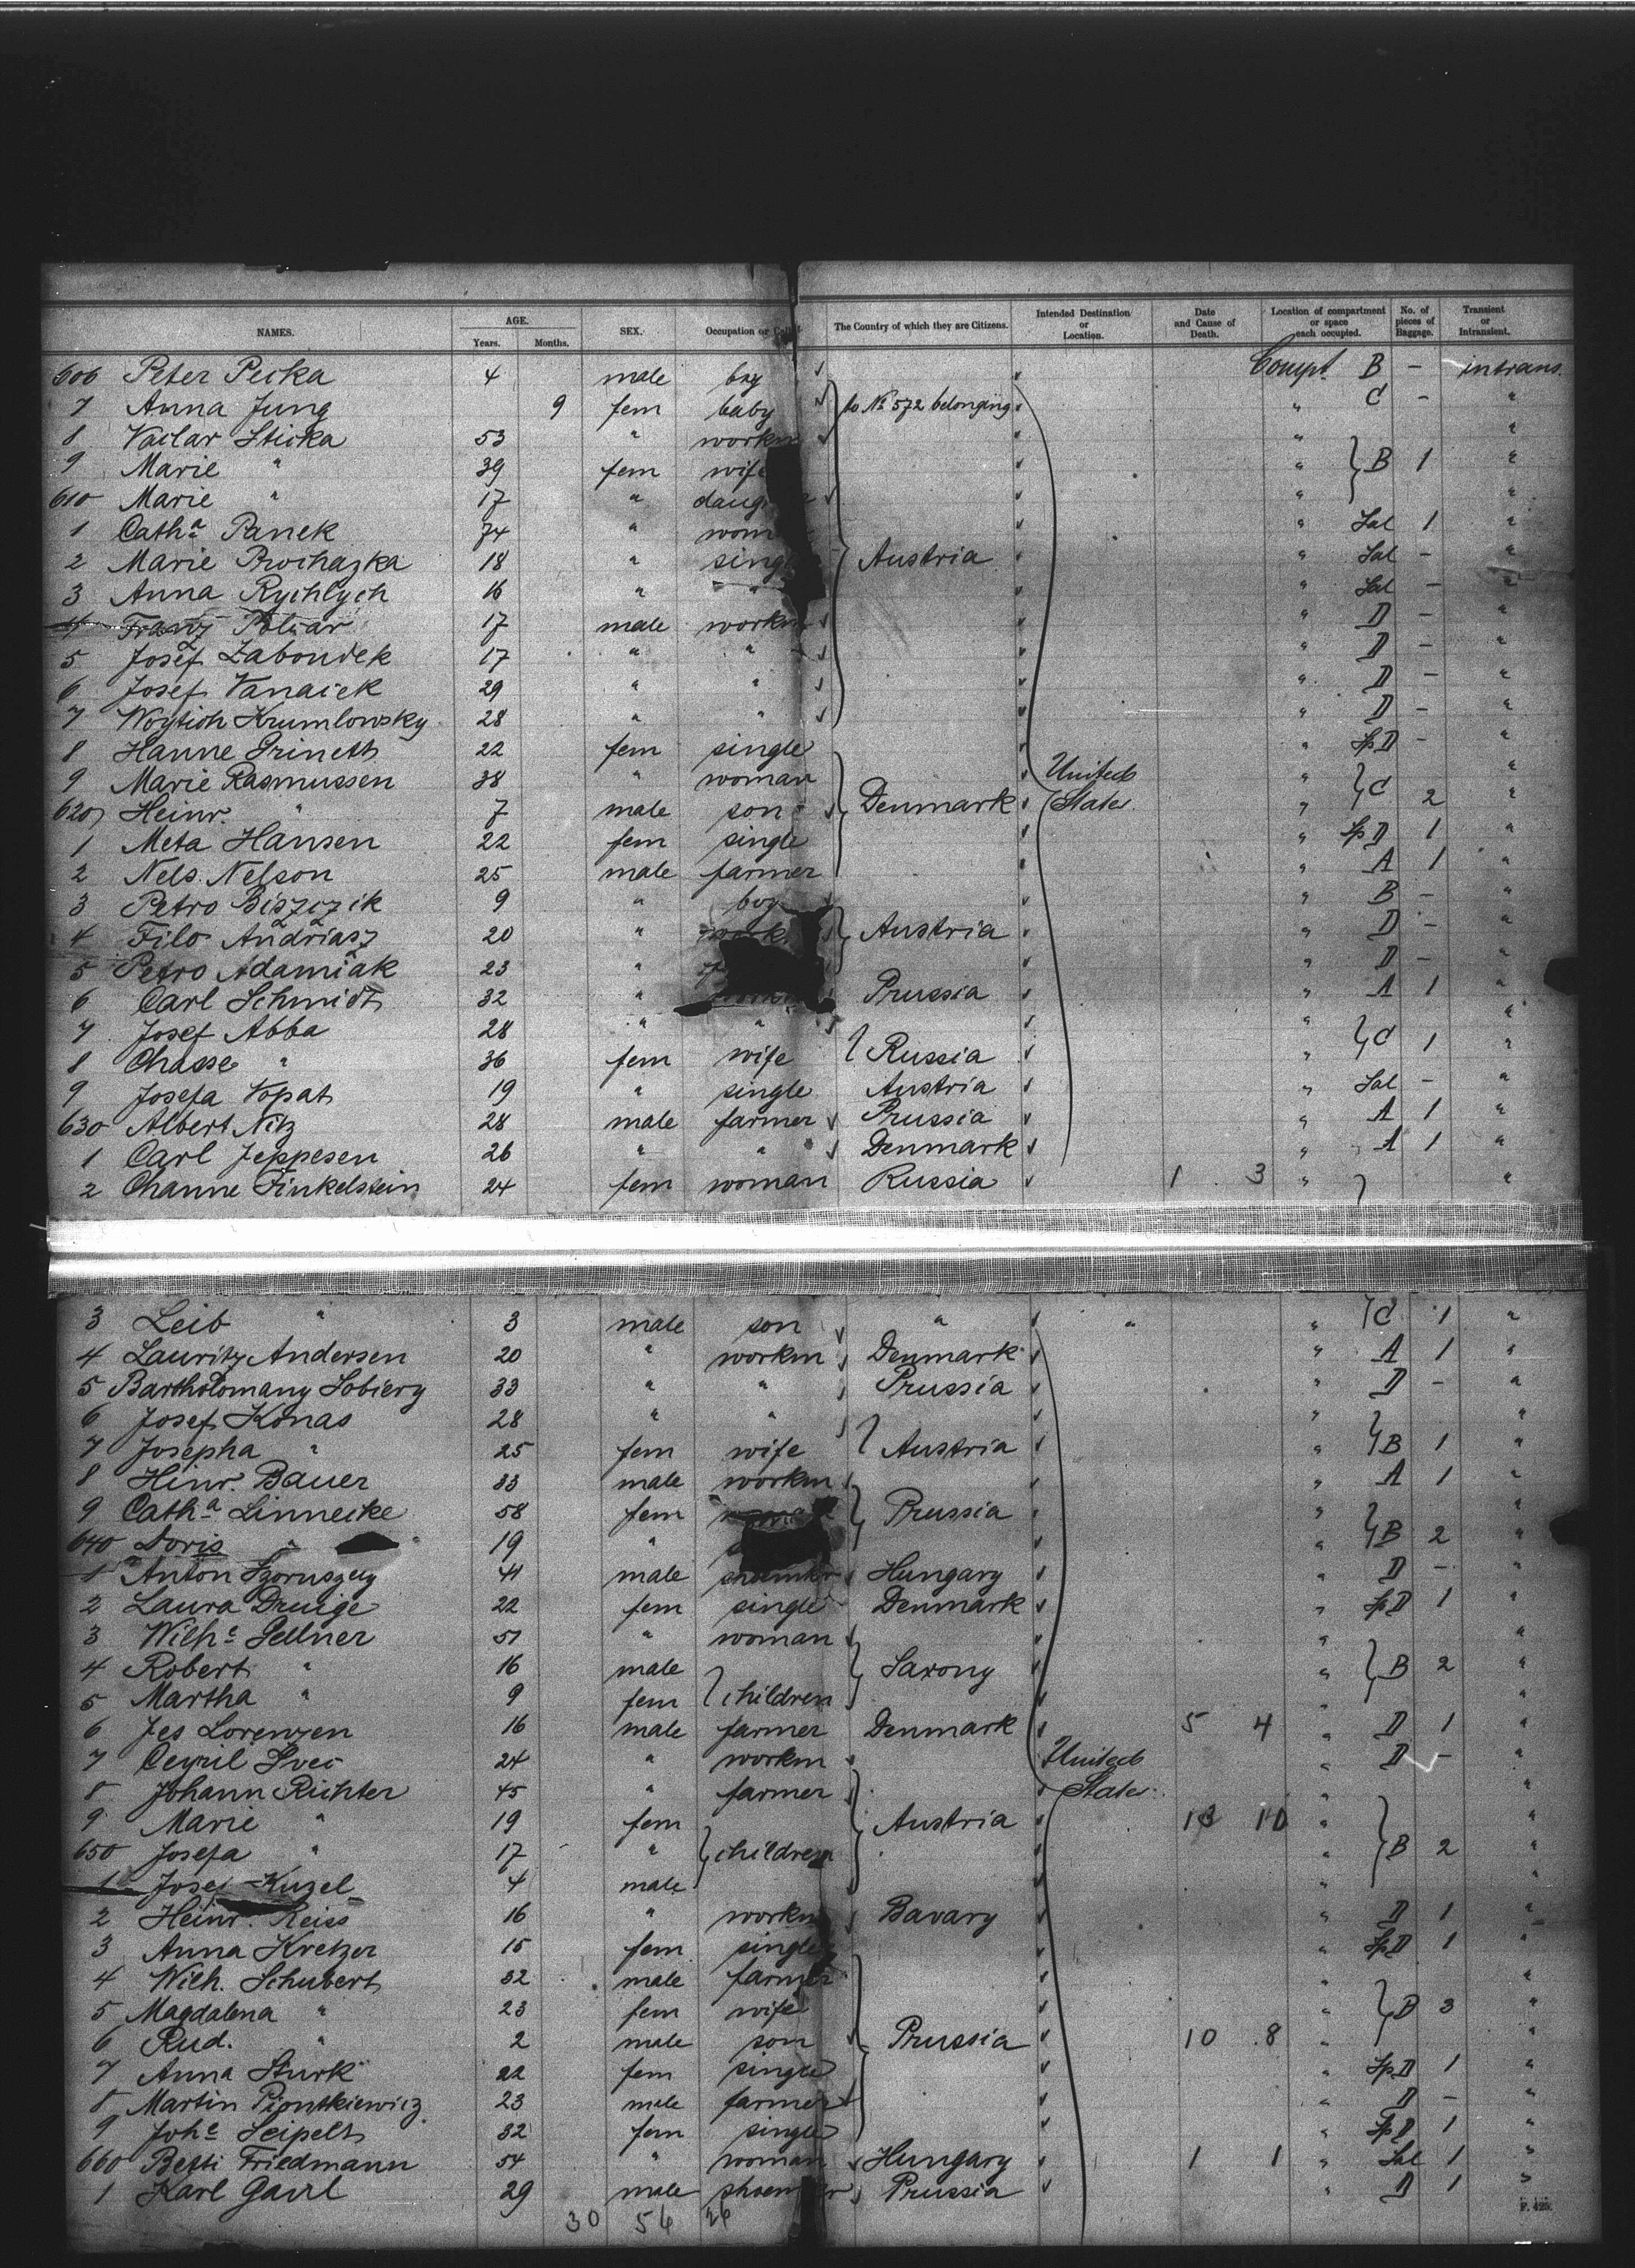 NAMES. AGE. Years. Months. SEX. Occupation or The Country of which they are Citizens. Intended Destination or Location. Date and Cause of Death. Location of compartment or space each occupied. No. of pieces of Baggage. Transient or Intransient.
606 Peter Pecka 4 male boy Compt. B - intrans.
7 Anna Jung 9 fem baby to No 572 belonging " C - "
8 Vaclav Sticka 53 " workm " "
9 Marie " 39 fem wife " B 1 "
610 Marie " 17 " " "
1 Catha Panek 74 " " Sal 1 "
2 Marie Prochazka 18 " single Austria " Sal - "
3 Anna Rychlych 16 " " " Sal - "
4 Franz 17 male workm " D - "
5 Josef Zaboudek 17 " " " D - "
6 Josef Vanacek 29 " " " D - "
7 Woytich Krumlowsky 28 " " " D - "
8 Hanne Grineth 22 fem single " Sp D - "
9 Marie Rasmussen 38 " woman United " "
620 Heinr. " 7 male son Denmark States " C 2 "
1 Meta Hansen 22 fem single " Sp D 1 "
2 Nels Nelson 25 male farmer " A 1 "
3 Petro Biszczik 9 " boy " B - "
4 Filo Andriasz 20 " Austria " D - "
5 Petro Adamiak 23 " " D - "
6 Carl Schmidt 32 " Prussia " A 1 "
7 Josef Abba 28 " " " "
8 Chasse " 36 fem wife Russia " C 1 "
9 Josefa Vopat 19 " single Austria " Sal - "
630 Albert Nitz 28 male farmer Prussia " A 1 "
1 Carl Jeppesen 26 " " Denmark " A 1 "
2 Channe Finkelstein 24 fem woman Russia 1 3 " "
3 Leib " 3 male son " " " C 1 "
4 Lauritz Andersen 20 " workm Denmark " A 1 "
5 Bartholomany Sobiery 33 " " Prussia " D - "
6 Josef Konas 28 " " " "
7 Josepha " 25 fem wife Austria " B 1 "
8 Hinr. Bauer 33 male workm " A 1 "
9 Catha Linnecke 58 fem Prussia " "
640 Doris " 19 " " B 2 "
1 Anton 41 male Hungary " D - "
2 Laura Druige 22 fem single Denmark " Sp D 1 "
3 Wilhe Gellner 51 " woman " "
4 Robert " 16 male Saxony " B 2 "
5 Martha " 9 fem children " "
6 Jes Lorenzen 16 male farmer Denmark 5 4 " D 1 "
7 Cyril Svec 24 " workm United " D - "
8 Johann Richter 45 " farmer States " "
9 Marie " 19 fem Austria 13 10 " "
650 Josefa " 17 " children " B 2 "
1 Josef Kuzel 4 male " "
2 Heinr. Reiss 16 " workm Bavary " D 1 "
3 Anna Kretzer 15 fem single " Sp D 1 "
4 Wilh. Schubert 32 male farmer " "
5 Magdalena " 23 fem wife " B 3 "
6 Rud. " 2 male son Prussia 10 8 " "
7 Anna Sturk 22 fem single " Sp D 1 "
8 Martin Piontkiewicz 23 male farmer " D - "
9 Johe Seipelt 32 fem single " Sp D 1 "
660 Betti Friedmann 54 " woman Hungary 1 1 " Sal 1 "
1 Karl Gavrl 29 male Prussia " D 1 "
30 54 26